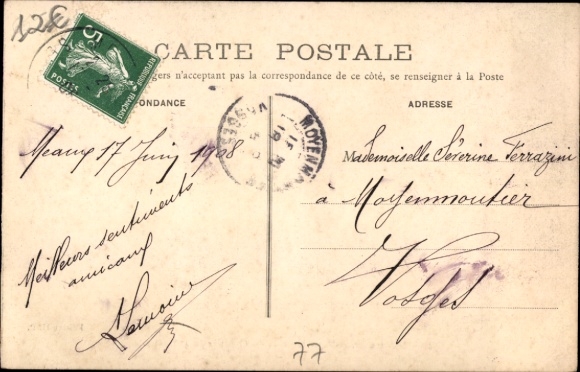 12€
5
POSTES
REPUBLIQUE FRANÇAISE
CARTE POSTALE
gers n'acceptant pas la correspondance de ce côté, se renseigner à la Poste
ONDANCE
ADRESSE
MOYENMOUTIER
VOSGES
Meaux 17 Juin 1908
Meilleurs sentiments
amicaux
Lemoine
Mademoiselle Séverine Ferrazini
a Moyenmoutier
Vosges
77